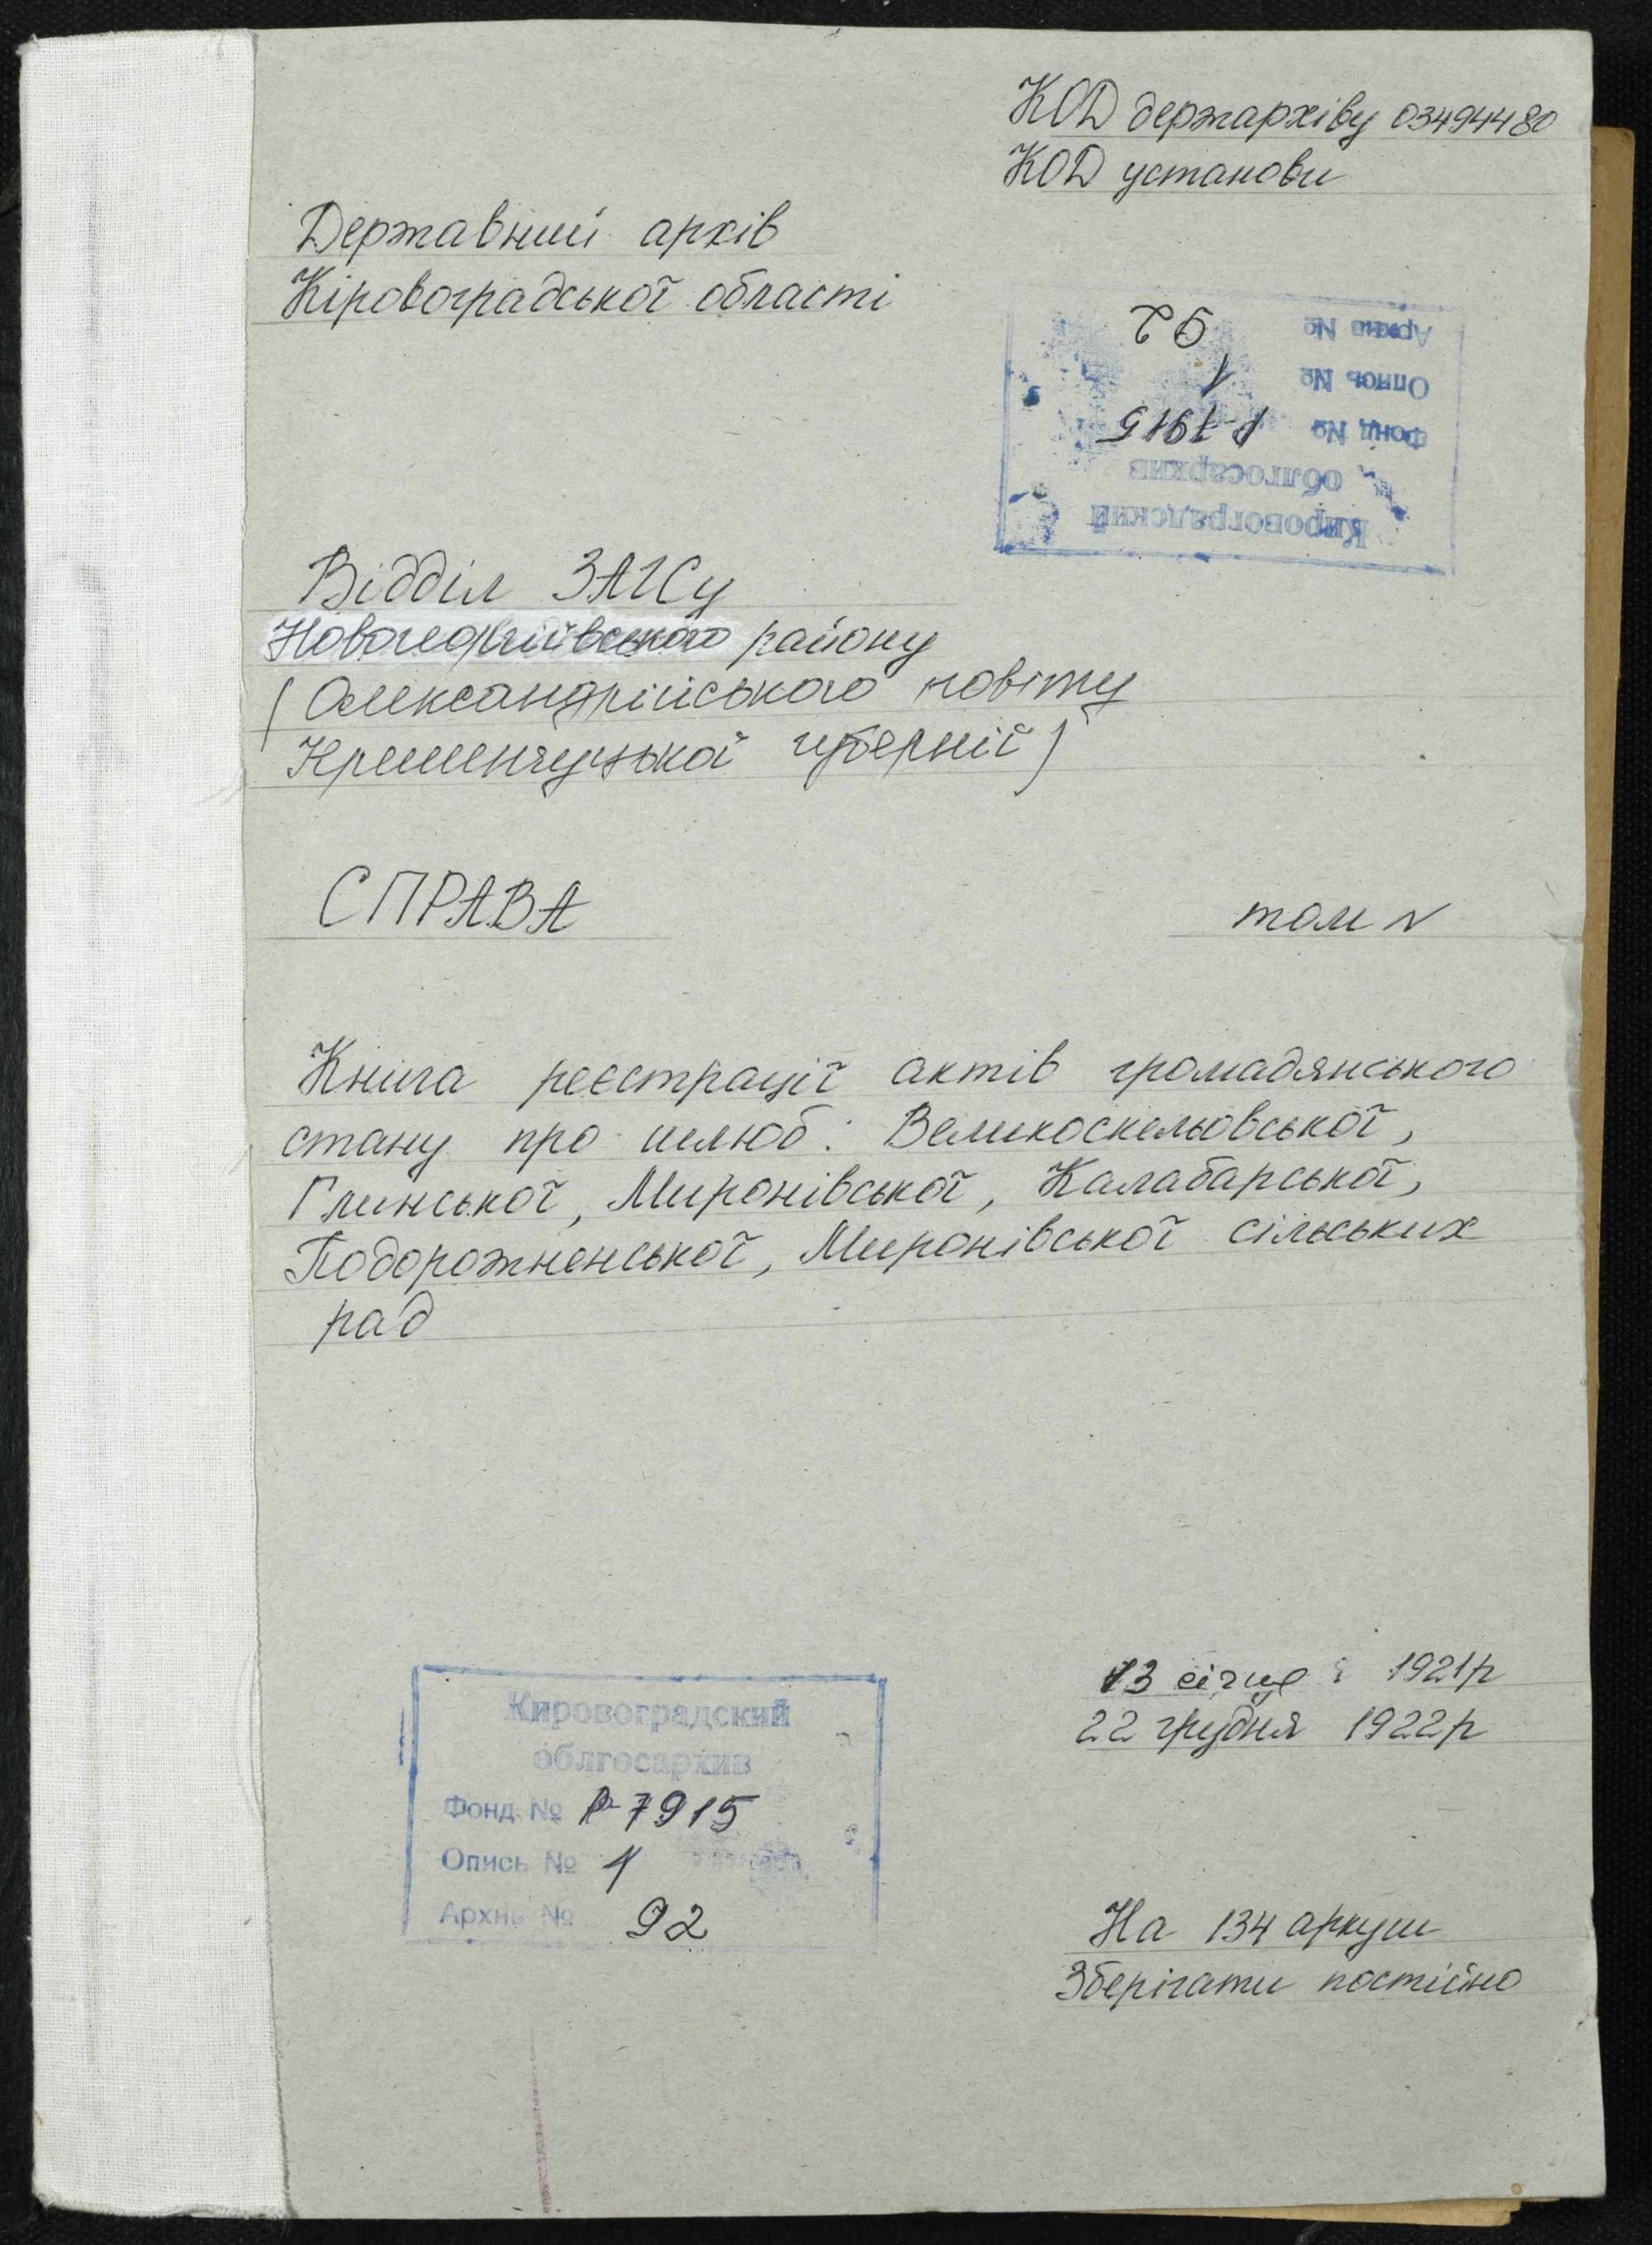 КОД держархіву 03494480
КОД установи
Державний архів
Кіровоградської області
Кировоградский
облгосархив
Фонд № Р-7915
Опись № 1
Архив № 92
Відділ ЗАГСу
Новогеоргіївського району
(Олександрійського повіту
Кременчуцької губернії)
СПРАВА
том N
Книга реєстрації актів громадянського
стану про шлюб: Великоскельовської,
Глинської, Миронівської, Калабарської,
Подорожненської, Миронівської сільських
рад
13 січня 1921р
22 грудня 1922р
Кировоградский
облгосархив
Фонд № Р-7915
Опись № 1
Архив № 92
На 134 аркуш
Зберігати постійно